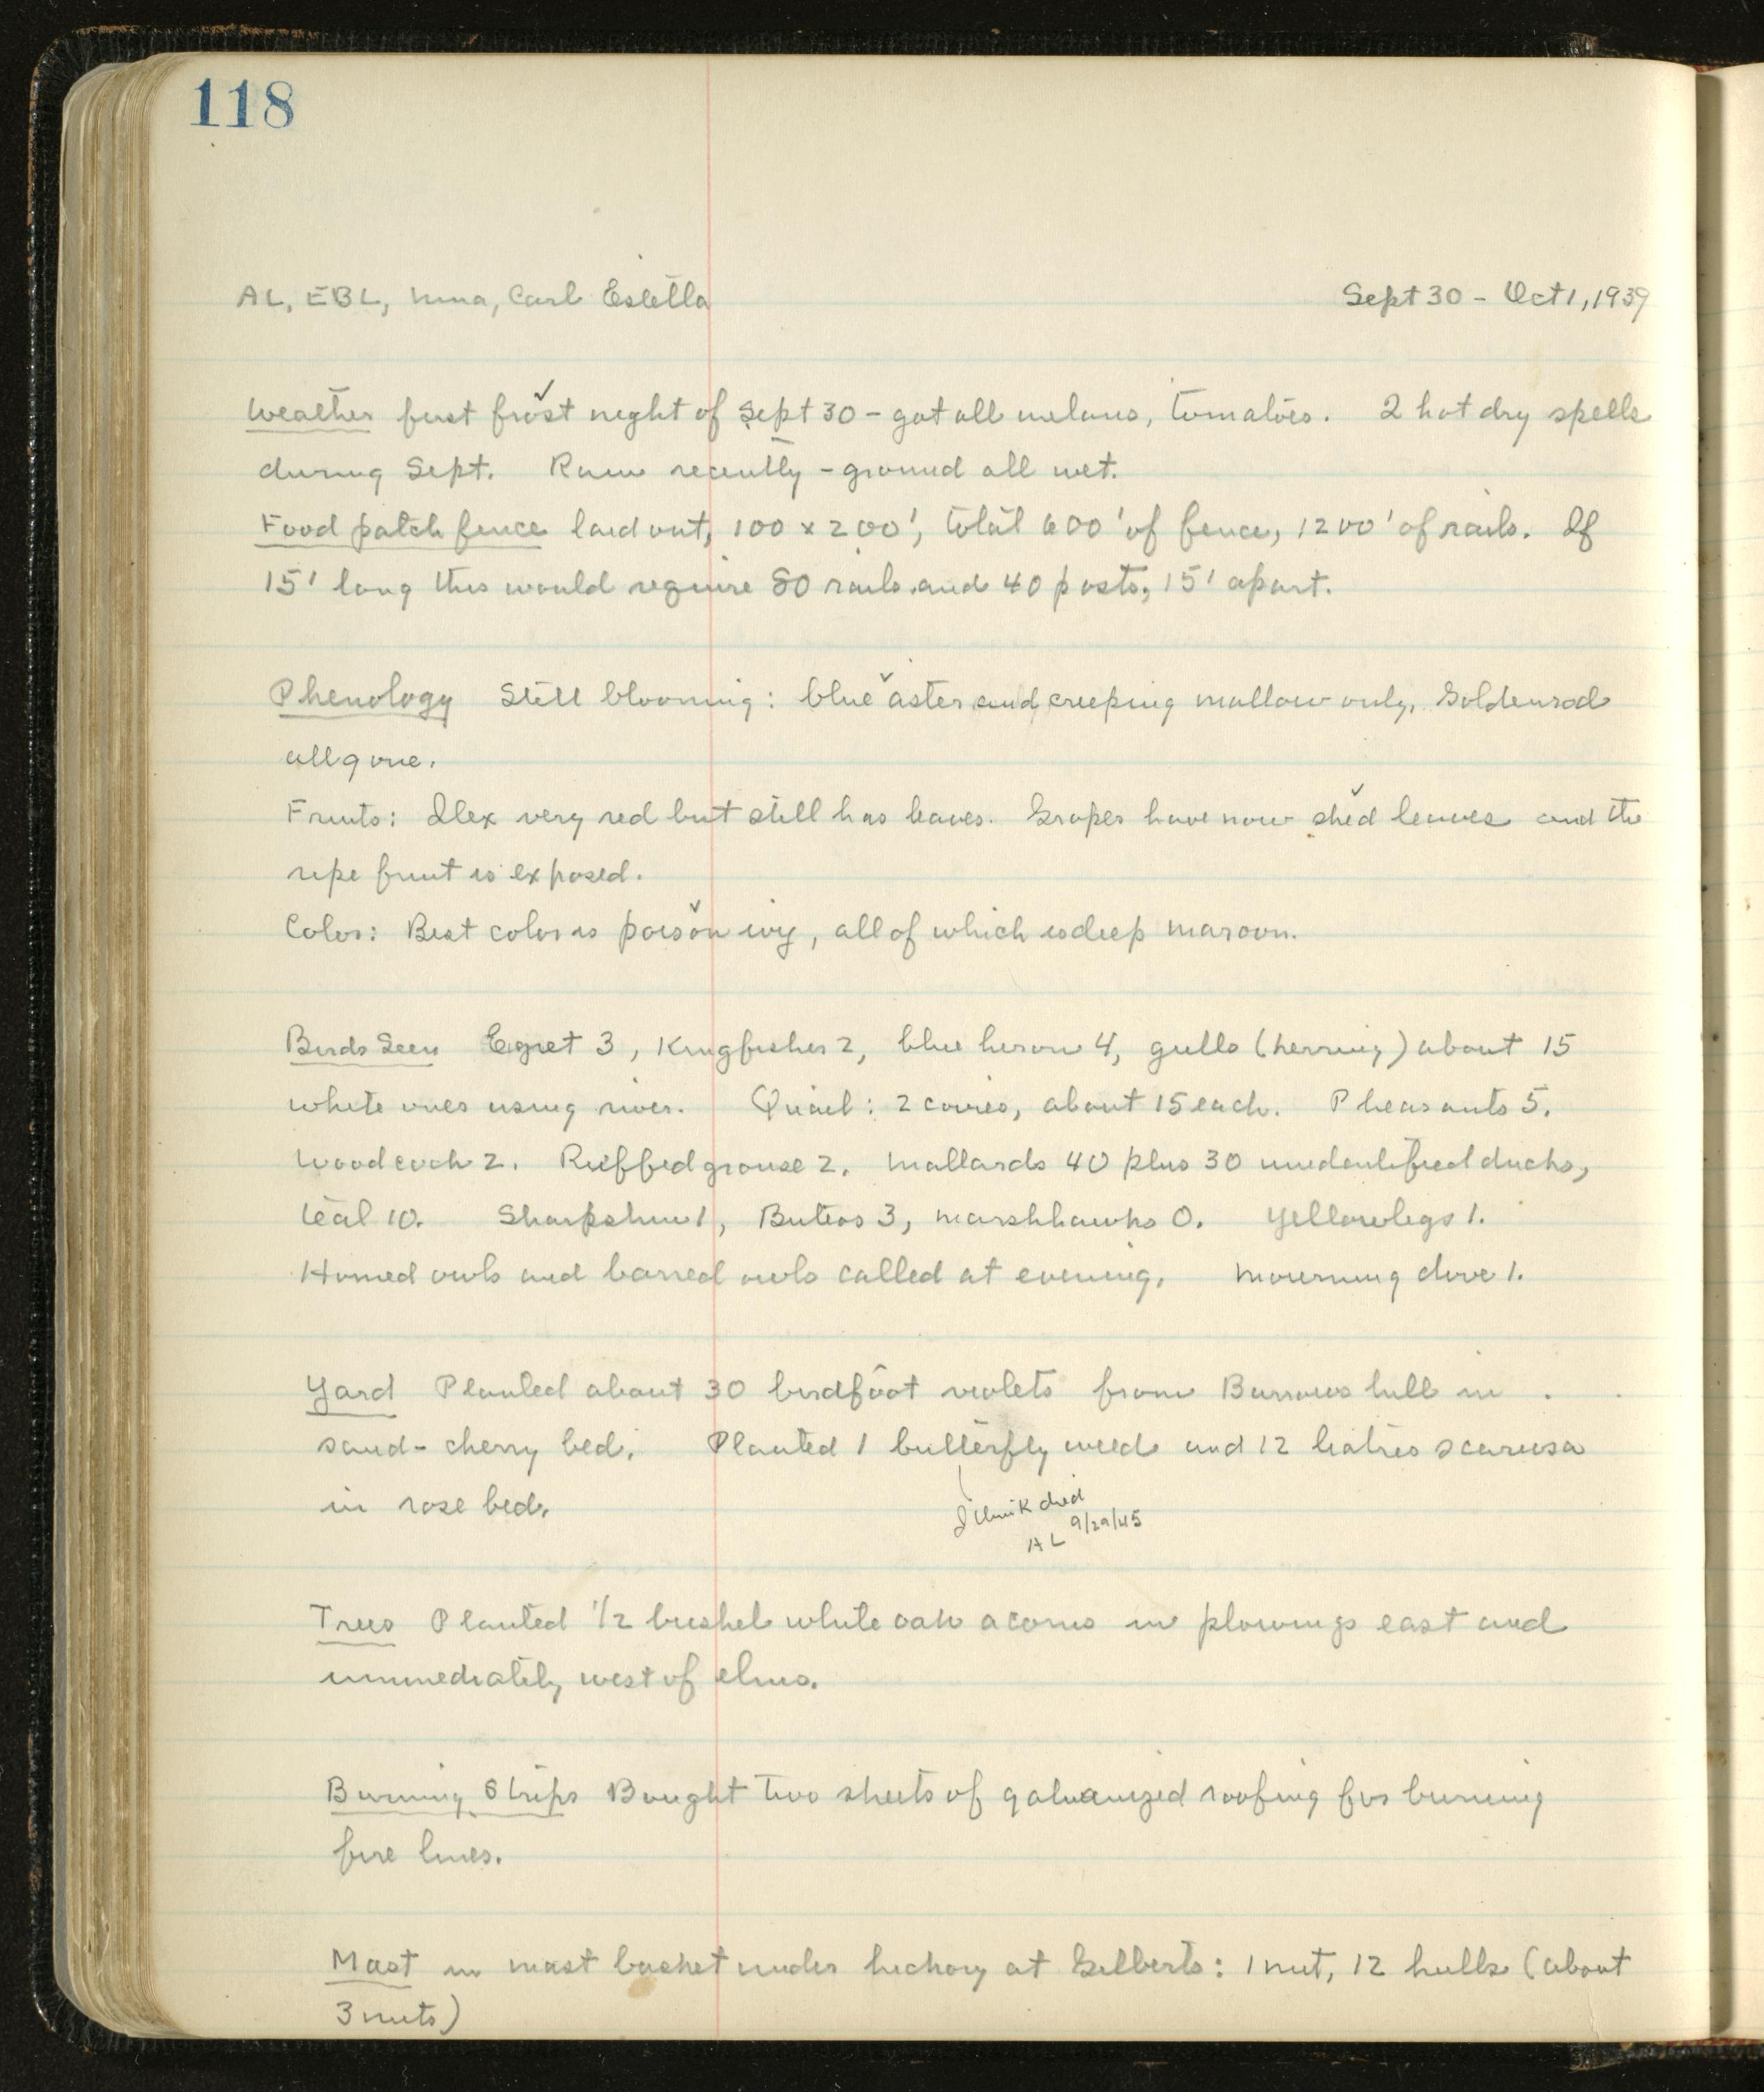 118
AL, EBL, Nina, Carl Estella
Sept 30 - Oct 1, 1939
Weather first frost night of Sept 30 - got all melons, tomatoes. 2 hot dry spells
during Sept. Rain recently - ground all wet.
Food patch fence laid out, 100 x 200', total 600' of fence, 1200' of rails. If
15' long this would require 80 rails and 40 posts, 15' apart.
Phenology Still blooming: blue aster and creeping mallow only, Goldenrod
all gone.
Fruits: Ilex very red but still has leaves. Grapes have now shed leaves and the
ripe fruit is exposed.
Color: Best color is poison ivy, all of which is deep maroon.
Birds Seen Egret 3, Kingfisher 2, blue heron 4, gulls (herring) about 15
white ones using river. Quail: 2 covies, about 15 each. Pheasants 5.
Woodcock 2. Ruffed grouse 2. Mallards 40 plus 30 unidentified ducks,
teal 10. Sharpshin 1, Buteos 3, marshhawks 0. Yellowlegs 1.
Horned owls and barred owls called at evening. Mourning dove 1.
Yard Planted about 30 birdfoot violets from Burrows hill in
sand-cherry bed. Planted 1 butterfly weed and 12 liatris scariosa
in rose bed.
I think died
9/29/45
AL
Trees Planted 1/2 bushel white oak acorns in plowings east and
immediately west of elms.
Burning Strips Bought two sheets of galvanized roofing for burning
fire lines.
Mast in mast basket under hickory at Gilberts: 1 nut, 12 hulls (about
3 nuts)